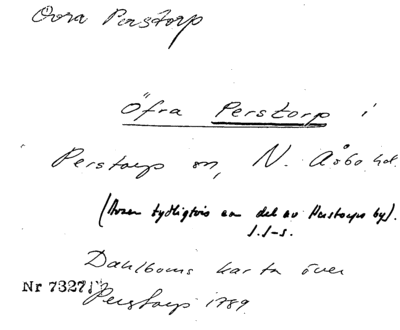 Övra Perstorp
Öfra Perstorp i
Perstorps sn, N. Åsbo hd.
(Avser tydligtvis en del av Perstorps by).
J.J-s.
Dahlboms karta över
Nr 7327
Perstorp 1789.